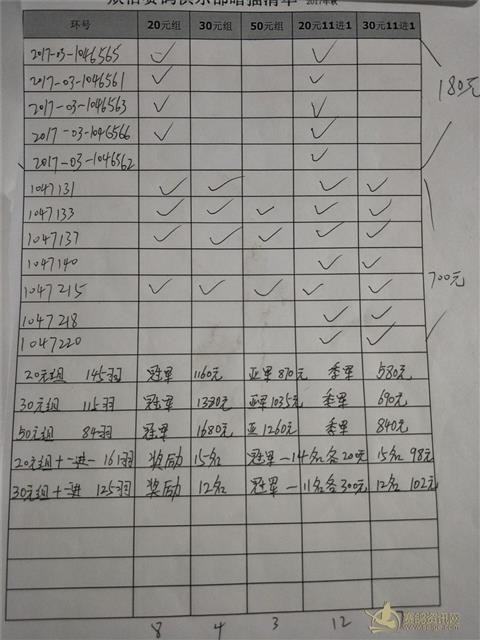 俱乐部暗插清单 2017年秋
环号 20元组 30元组 50元组 20元11进1 30元11进1
2017-03-1046565 ✓ ✓
2017-03-1046561 ✓ ✓
2017-03-1046563 ✓ ✓
2017-03-1046566 ✓ ✓
2017-03-1046562 ✓
180元
1047131 ✓ ✓ ✓ ✓
1047133 ✓ ✓ ✓ ✓ ✓
1047137 ✓ ✓ ✓ ✓ ✓
1047140 ✓ ✓
1047215 ✓ ✓ ✓ ✓ ✓
1047218 ✓ ✓
1047220 ✓ ✓
700元
20元组 145羽 冠军 1160元 亚军 870元 季军 580元
30元组 115羽 冠军 1380元 亚军 1035元 季军 690元
50元组 84羽 冠军 1680元 亚 1260元 季军 840元
20元组十一进一 161羽 奖励 15名 冠军一14名各20元 15名 98元
30元组十一进 125羽 奖励 12名 冠军一11名各300元 12名 102元
8 4 3 12
赛鸽资讯网